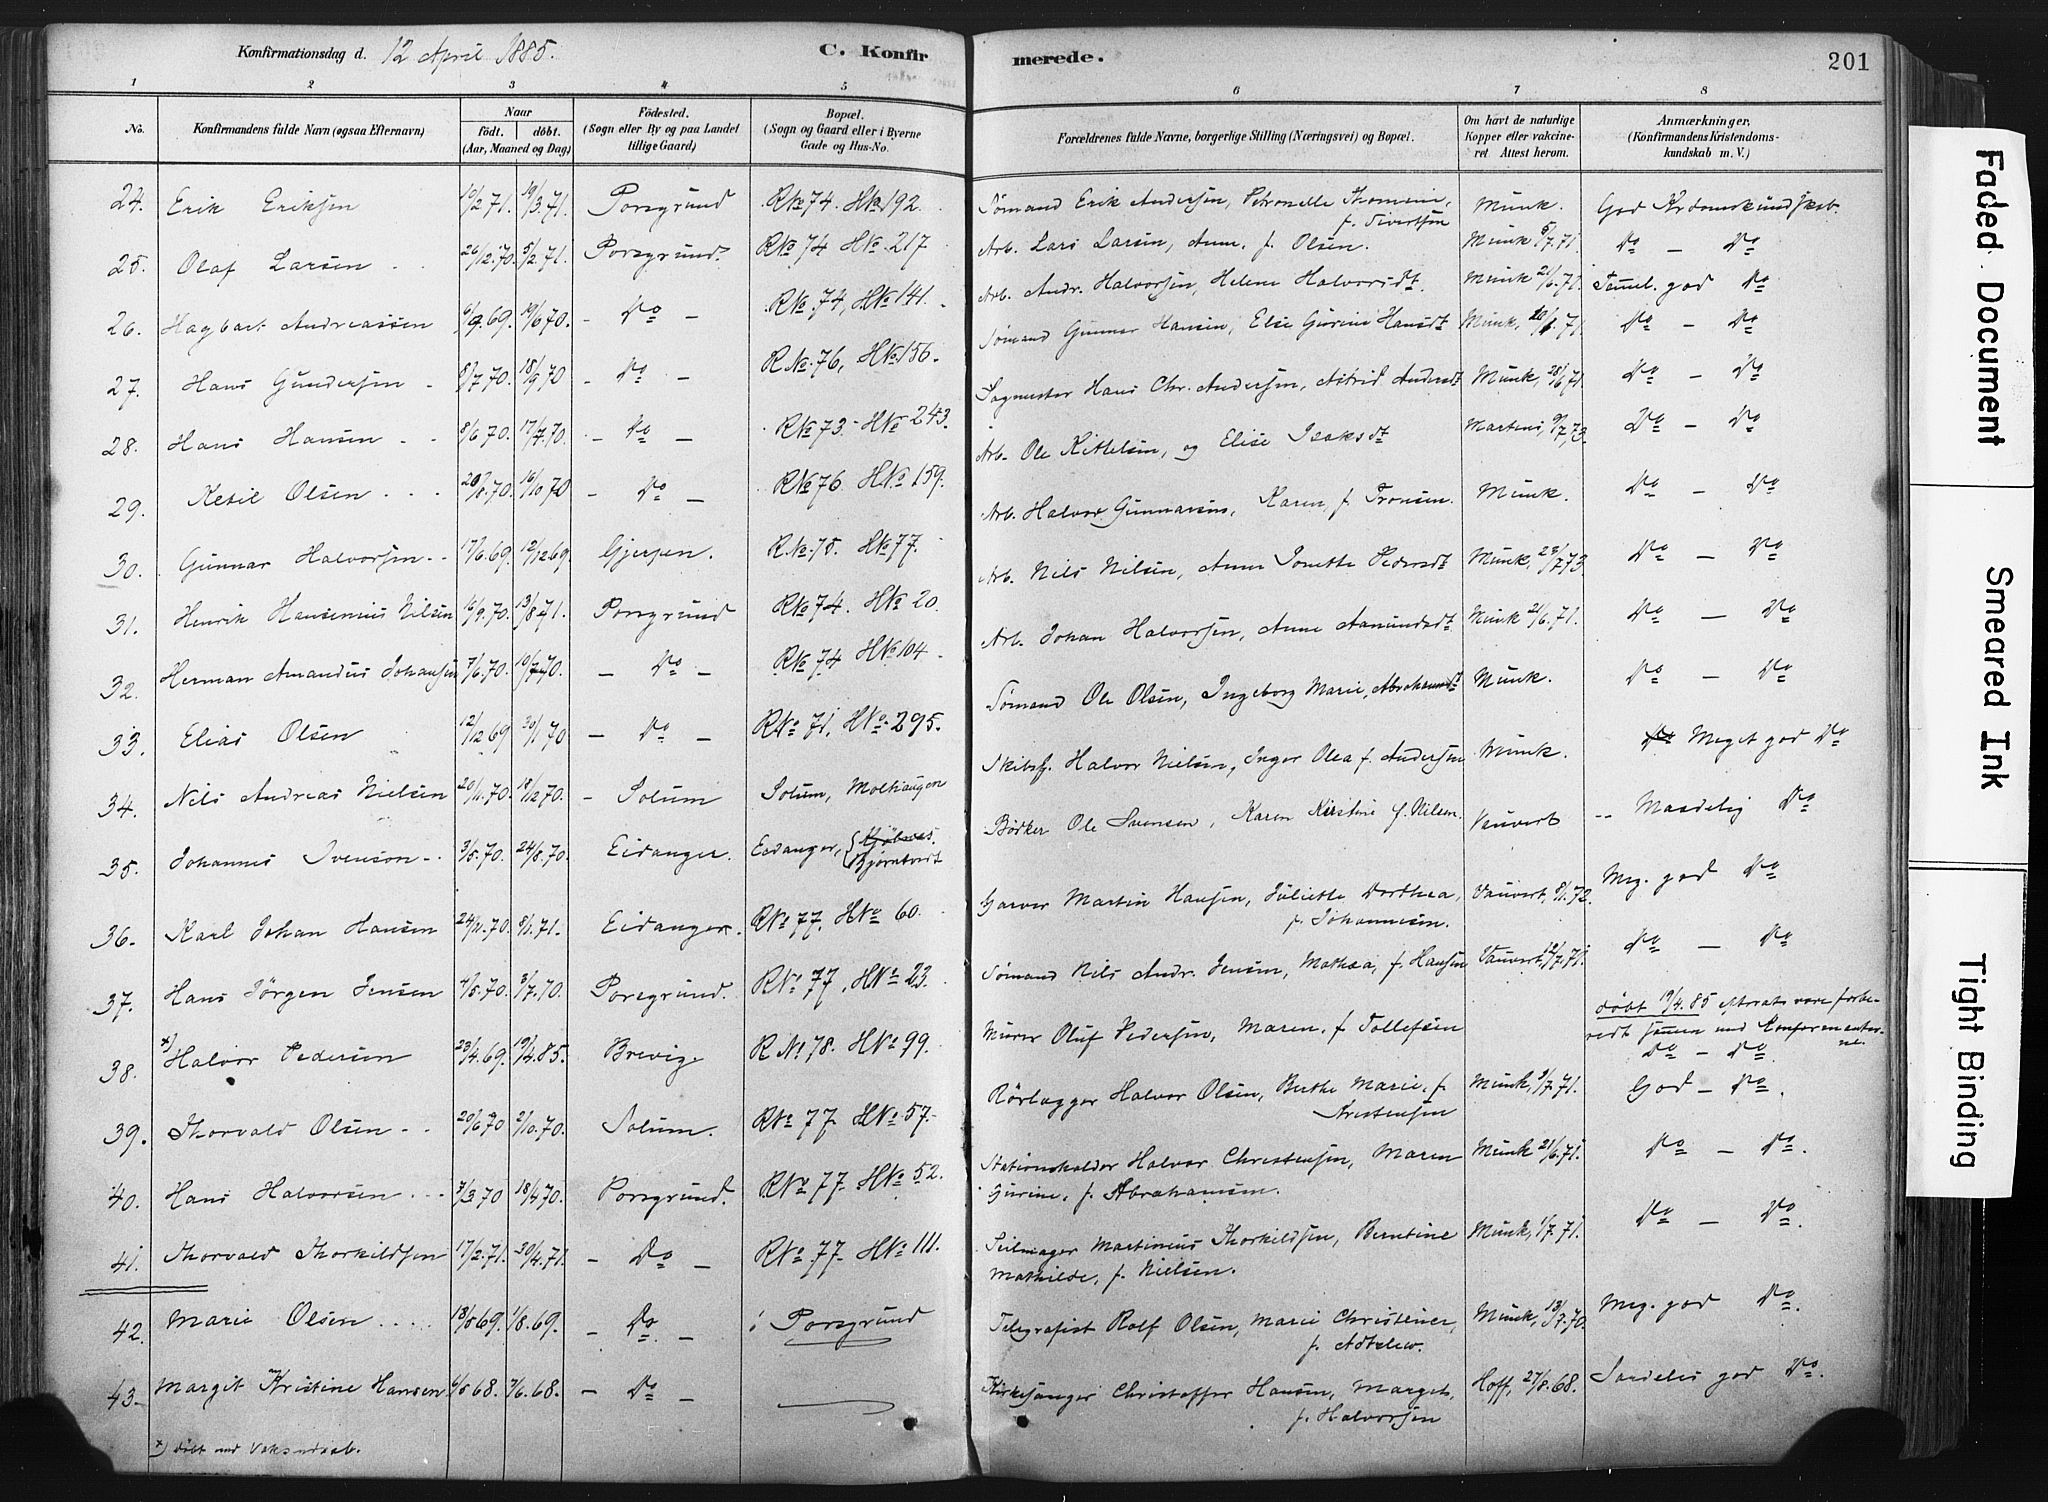 Konfirmationsdag d. 12 April 1885.
C. Konfirmerede.
201
1 2 3 4 5 6 7 8
No.
Konfirmandens fulde Navn (ogsaa Efternavn)
Naar
födt. döbt.
(Aar, Maaned og Dag)
Födested.
(Sogn eller By og paa Landet
tillige Gaard)
Bopæl.
(Sogn og Gaard eller i Byerne
Gade og Hus-No.
Forældrenes fulde Navne, borgerlige Stilling (Næringsvei) og Bopæl.
Om havt de naturlige
Kopper eller vakcine-
ret Attest herom.
Anmærkninger,
(Konfirmandens Kristendoms-
kundskab m. V.)
24. Erik Eriksen 10/2.71. 19/3.71. Porsgrund RNo 74. HNo 192. Sömand Erik Andersen, Petronelle Thomine, f. Sivertsen Munk. God Krdomskundskab.
25. Olaf Larsen 26/12.70. 5/2.71. Porsgrund. RNo 74 HNo 217 Arb. Lars Larsen, Anne, f. Olsen. Munk 5/7.71. Do — Do
26. Hagbart Andreassen 6/9.69. 19/6.70. - Do - RNo 74, HNo 141. Arb. Andr. Halvorsen, Helene Halvorsdt. Munk 21/6.71. Temmel. god Do
27. Hans Gundersen 8/7.70. 18/9.70 - Do - RNo 76, HNo 156. Sömand Gunnar Hansen, Else Gurine Hansdt Munk, 20/6.71. Do — Do
28. Hans Hansen 8/6.70. 17/7.70. - Do - RNo 73. HNo 243. Sagmester Hans Chr. Andersen, Astrid Andersdt Munk, 28/6.71. Do — Do
29. Ketil Olsen 20/8.70. 16/10.70 - Do - RNo 76 HNo 159. Arb. Ole Kittelsen, og Elise Isaksdt Martens, 9/7.73. Do — Do
30. Gunnar Halvorsen 17/6.69. 12/12.69. Gjerpen. RNo 78. HNo 77. Arb. Halvor Gunnarsen, Karen, f. Tronsen. Munk. Do — Do
31. Henrik Hansenius Nilsen 16/9.70. 13/8.71. Porsgrund RNo 74. HNo 20. Arb. Nils Nilsen, Anne Jonette Pedersdt Munk, 23/7.73. Do — Do
32. Herman Amandus Johansen 7/6.70. 10/7.70. - Do - RNo 74 HNo 104 Arb. Johan Halvorsen, Anne Aamundsdt Munk 21/6.71. Do — Do
33. Elias Olsen 12/12.69 30/1.70 - Do - RNo 71, HNo 295. Sömand Ole Olsen, Ingeborg Marie, Abrahamsdt Munk. Do — Do
34. Nils Andreas Nielsen 20/11.70. 18/12.70. - Solum Solum, Molhaugen Skibsf. Halvor Nielsen, Inger Olea f. Andersen Munk. Do Meget god Do
35. Johannes Svenson 3/5.70. 24/8.70. Eidanger. Eidanger, Bjørntvedt Bödker Ole Svensen, Karen Kirstine f. Nilsen. Vauvert -- Maadelig Do
36. Karl Johan Hansen 24/11.70. 8/1.71. Eidanger. RNo 77. HNo 60. Garver Martin Hansen, Juliette Dorthea, f. Johannesen. Vauvert, 8/1.72. Meg. god Do
37. Hans Jörgen Jensen 4/5.70. 3/7.70. Porsgrund. RNo 77, HNo 23. Sömand Nils Andr. Jensen, Mathea, f. Hansen Vauvert, 12/7.71. Do — Do
38. x) Halvor Pedersen 23/4.69. 19/4.85. Brevig. RNo 78. HNo 99. Murer Oluf Pedersen, Maren, f. Tollefsen döbt 19/4.85 efterat være forbe-
redt sammen med Konfirmanter-
ne. Do — Do
39. Thorvald Olsen 20/6.70 2/10.70. Solum. RNo 77 HNo 57. Rörlægger Halvor Olsen, Berthe Marie, f. Kristensen Munk, 3/7.71. God — Do.
40. Hans Halvorsen 7/3.70 18/4.70. Porsgrund. RNo 77. HNo 52. Stationsholder Halvor Christensen, Maren Gurine, f. Abrahamsen. Munk 21/6.71. Do — Do.
41. Thorvald Thorkildsen 17/2.71. 30/4.71. - Do - RNo 77. HNo 111. Seilmager Martinius Thorkildsen, Berntine Mathilde, f. Nielsen. Munk, 1/7.71. Do — Do.
42. Marie Olsen 18/5.69. 1/8.69. - Do - Porsgrund Telegrafist Rolf Olsen, Marie Christine, Munk, 13/7.70. Meg. god Do.
43. Margit Kristine Hansen 6/5.68. 7/6.68. - Do - Kirkesanger Christoffer Hansen, Margit, f. Halvorsen Hoff, 27/8.68. Særdeles god Do.
x) döbt ved Vaksendaab.
Faded Document
Smeared Ink
Tight Binding